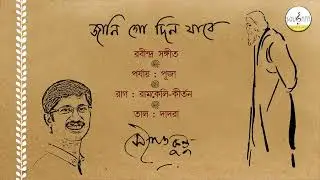 জানি গো দিন যাবে
রবীন্দ্র সঙ্গীত
পর্যায় : পূজা
রাগ : রামকেলি-কীর্তন
তাল : দাদরা